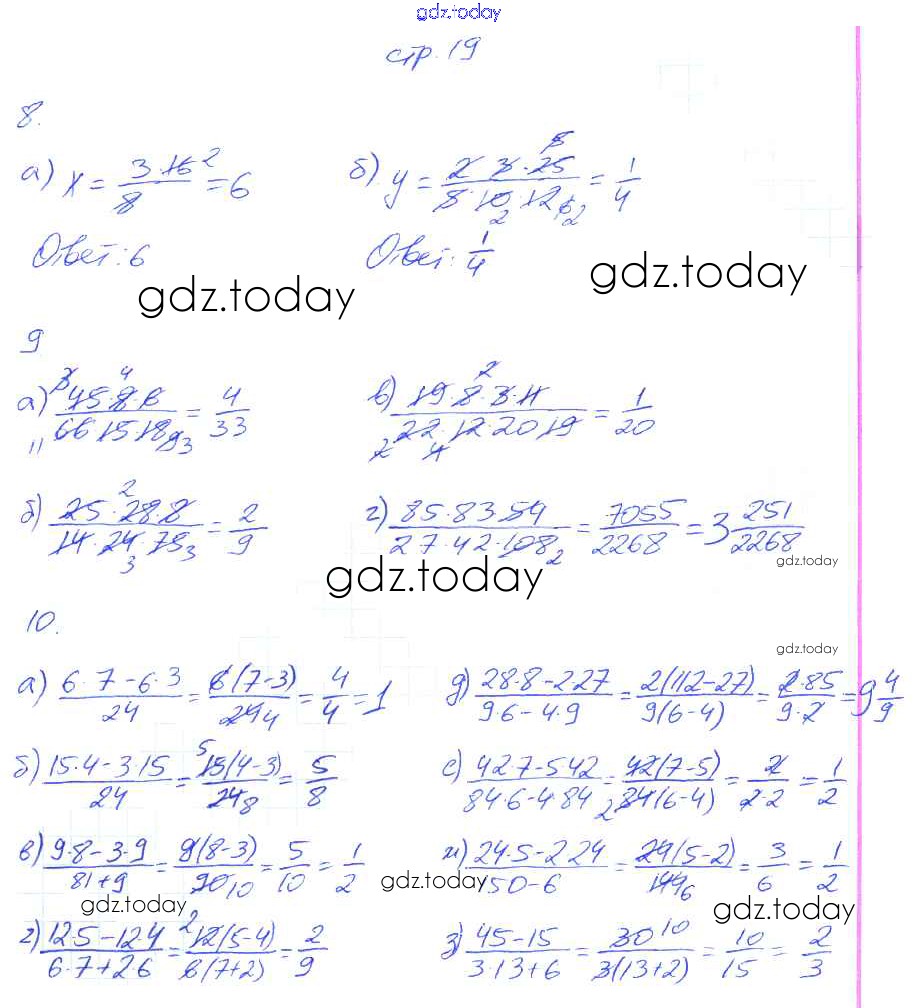 gdz.today
стр. 19
8.
а) x = 3·16/8 = 6 б) y = 2·3·25/5·10·12 = 1/4
Ответ: 6 Ответ: 1/4
gdz.today gdz.today
9
а) 45·8·6/66·15·18 = 4/33 в) 19·8·3·11/22·12·20·19 = 1/20
б) 25·28·8/14·24·75 = 2/9 г) 85·83·54/27·42·108 = 7055/2268 = 3 251/2268
gdz.today
gdz.today
10.
gdz.today
а) 6·7-6·3/24 = 6(7-3)/24 = 4/4 = 1 д) 28·8-2·27/9·6-4·9 = 2(112-27)/9(6-4) = 2·85/9·2 = 9 4/9
б) 15·4-3·15/24 = 15(4-3)/24 = 5/8 е) 42·7-5·42/84·6-4·84 = 42(7-5)/84(6-4) = 2/2·2 = 1/2
в) 9·8-3·9/81+9 = 9(8-3)/90 = 5/10 = 1/2 ж) 24·5-2·24/150-6 = 24(5-2)/144 = 3/6 = 1/2
gdz.today
gdz.today gdz.today
г) 12·5-12·4/6·7+2·6 = 12(5-4)/6(7+2) = 2/9 з) 45-15/3·13+6 = 30/3(13+2) = 10/15 = 2/3